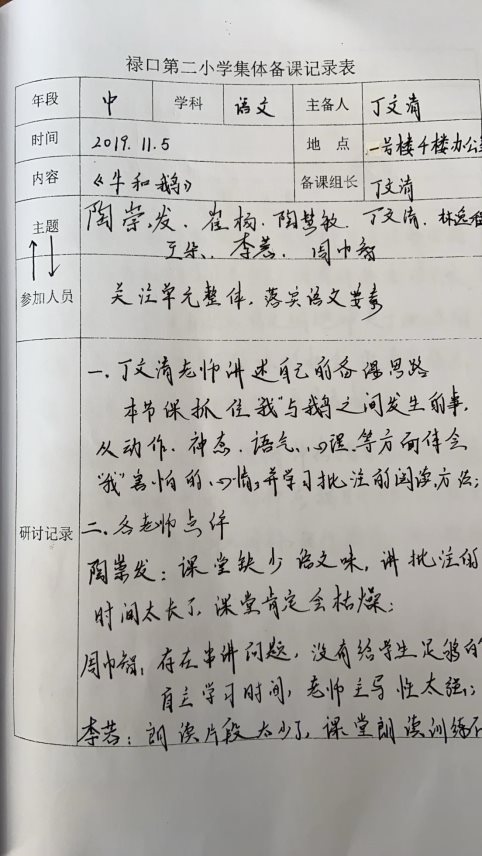 禄口第二小学集体备课记录表
年段 中 学科 语文 主备人 丁文清
时间 2019.11.5 地点 一号楼4楼办公室
内容 《牛和鹅》 备课组长 丁文清
主题 陶崇发、崔杨、陶慧敏、丁文清、林逸
李蕊、周巾智
参加人员 关注单元整体,落实语文要素
研讨记录
一、丁文清老师讲述自己的备课思路
本节课抓住“我”与鹅之间发生的事,
从动作、神态、语气、心理、等方面体会
“我”害怕的心情,并学习批注的阅读方法;
二、各老师点评
陶崇发:课堂缺少语文味,讲批注的
时间太长了,课堂肯定会枯燥;
周巾智:存在串讲问题,没有给学生足够的
自主学习时间,老师主导性太强;
朗读片段太少了,课堂朗读训练不